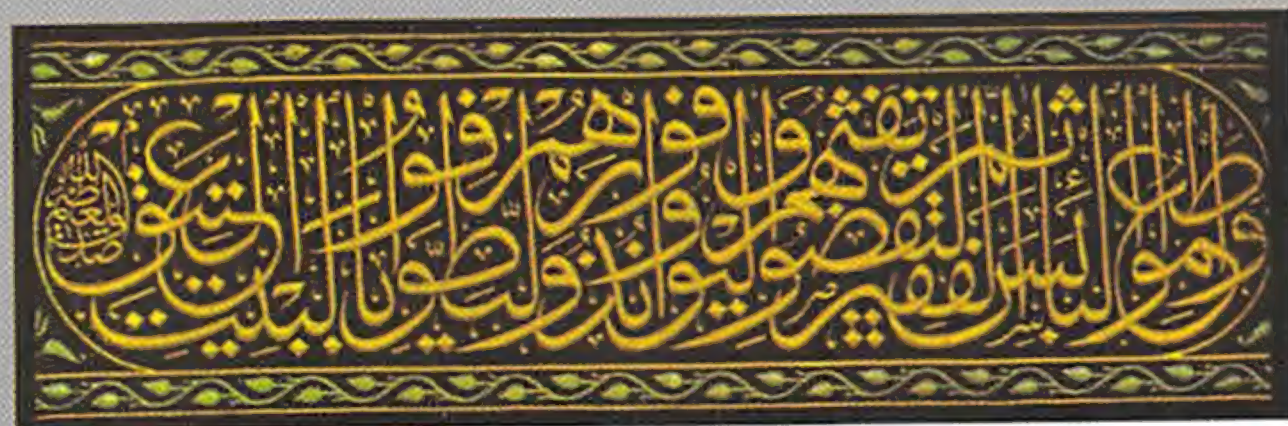 وأطعموا البائس الفقير ثم ليقضوا تفثهم وليوفوا نذورهم وليطوفوا بالبيت العتيق
صدق الله العظيم